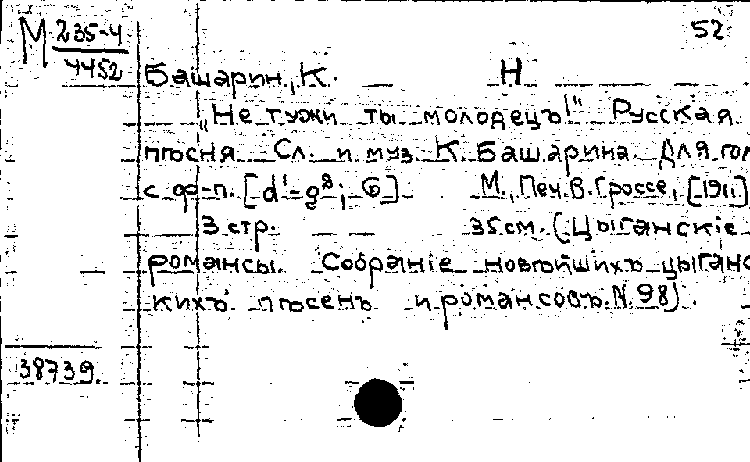 М 235-4
4452
52
Башарин, К. Н
„Не тужи ты молодецъ!" Русская
пѣсня. Сл. и муз. К. Башарина. Для гол
с ф-п. [d¹-g²; G] М., Печ. В. Гроссе, [1911]
3 стр. 35 см. (Цыганскіе
романсы. Собраніе новѣйшихъ цыганс
кихъ пѣсенъ и романсовъ. N 98).
38739.